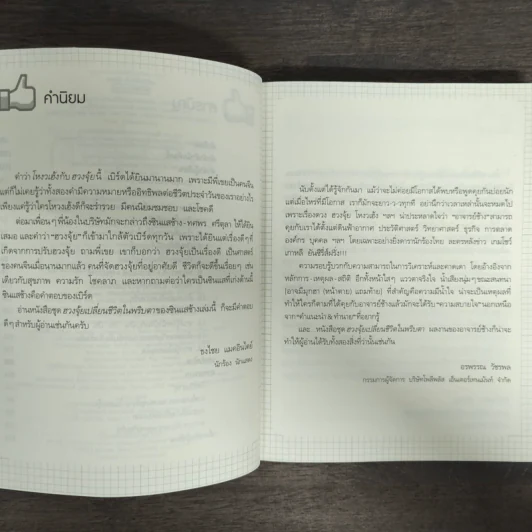 คำนิยม
คำว่า โหงวเฮ้งกับ ฮวงจุ้ย นี้ เบิร์ดได้ยินมานานมาก เพราะมีพี่เขยเป็นคนจีน
แต่ก็ไม่เคยรู้ว่าทั้งสองคำมีความหมายหรืออิทธิพลต่อชีวิตประจำวันของเราอย่างไร
เพียงแค่รู้ว่าใครโหงวเฮ้งดีก็จะร่ำรวย มีคนนิยมชมชอบ และโชคดี
ต่อมาเพื่อนๆ พี่น้องในบริษัทมักจะกล่าวถึงซินแสช้าง-ทศพร ศรีตุลา ให้ได้ยิน
เสมอ และคำว่า "ฮวงจุ้ย" ก็เข้ามาใกล้ตัวเบิร์ดทุกวัน เพราะได้ยินแต่เรื่องดีๆ ที่
เกิดจากการปรับฮวงจุ้ย ถามพี่เขย เขาก็บอกว่า ฮวงจุ้ยเป็นเรื่องดี เป็นศาสตร์
ของคนจีนเมื่อนานมาแล้ว คนที่จัดฮวงจุ้ยที่อยู่อาศัยดี ชีวิตก็จะดีขึ้นเรื่อยๆ เช่น
เดียวกับสุขภาพ ความรัก โชคลาภ และหากถามต่อว่าใครเป็นซินแสที่เก่งด้านนี้
ซินแสช้างคือคำตอบของเบิร์ด
อ่านหนังสือชุด ฮวงจุ้ยเปลี่ยนชีวิตในพริบตา ของซินแสช้างเล่มนี้ ก็จะมีคำตอบ
ดีๆ สำหรับผู้อ่านเช่นกันครับ
ธงไชย แมคอินไตย์
นักร้อง นักแสดง
นับตั้งแต่ได้รู้จักกันมา แม้ว่าจะไม่ค่อยมีโอกาสได้พบหรือพูดคุยกันบ่อยนัก
แต่เมื่อใดที่มีโอกาส เราก็มักจะยาว-ว-วทุกที อย่านึกว่าเวลาเหล่านั้นจะหมดไป
เพราะเรื่องดวง ฮวงจุ้ย โหงวเฮ้ง ฯลฯ น่าประหลาดใจว่า "อาจารย์ช้าง" สามารถ
คุยกับเราได้ตั้งแต่ดินฟ้าอากาศ ประวัติศาสตร์ วิทยาศาสตร์ ธุรกิจ การตลาด
องค์กร บุคคล ฯลฯ โดยเฉพาะอย่างยิ่งดารานักร้องไทย ละครหลังข่าว เกมโชว์
เกาหลี ยันซีรีส์ฝรั่ง!!!
ความรอบรู้บวกกับความสามารถในการวิเคราะห์และคาดเดา โดยอ้างอิงจาก
หลักการ-เหตุผล-สถิติ อีกทั้งหน้าใสๆ แววตาจริงใจ น้ำเสียงนุ่มๆ ขณะสนทนา
(อาจมีมุกฮา (หน้าตาย) แถมท้าย) ที่สำคัญคือความมีน้ำใจ น่าจะเป็นเหตุผลที่
ทำให้ใครก็ตามที่ได้คุยกับอาจารย์ช้างแล้วมักจะได้รับ "ความสบายใจ" นอกเหนือ
จาก "คำแนะนำ & ทำนาย" ที่อยากรู้
และ หนังสือชุด ฮวงจุ้ยเปลี่ยนชีวิตในพริบตา ผลงานของอาจารย์ช้างก็น่าจะ
ทำให้ผู้อ่านได้รับทั้งสองสิ่งที่ว่านั้นเช่นกัน
อรพรรณ วัชรพล
กรรมการผู้จัดการ บริษัทโพลีพลัส เอ็นเตอร์เทนเม้นท์ จำกัด